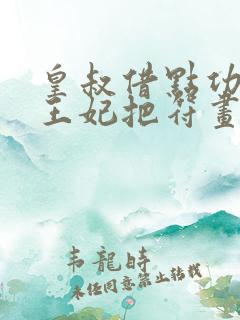 皇叔借點功
王妃把符畫
韦龍時
未经同意禁止转載